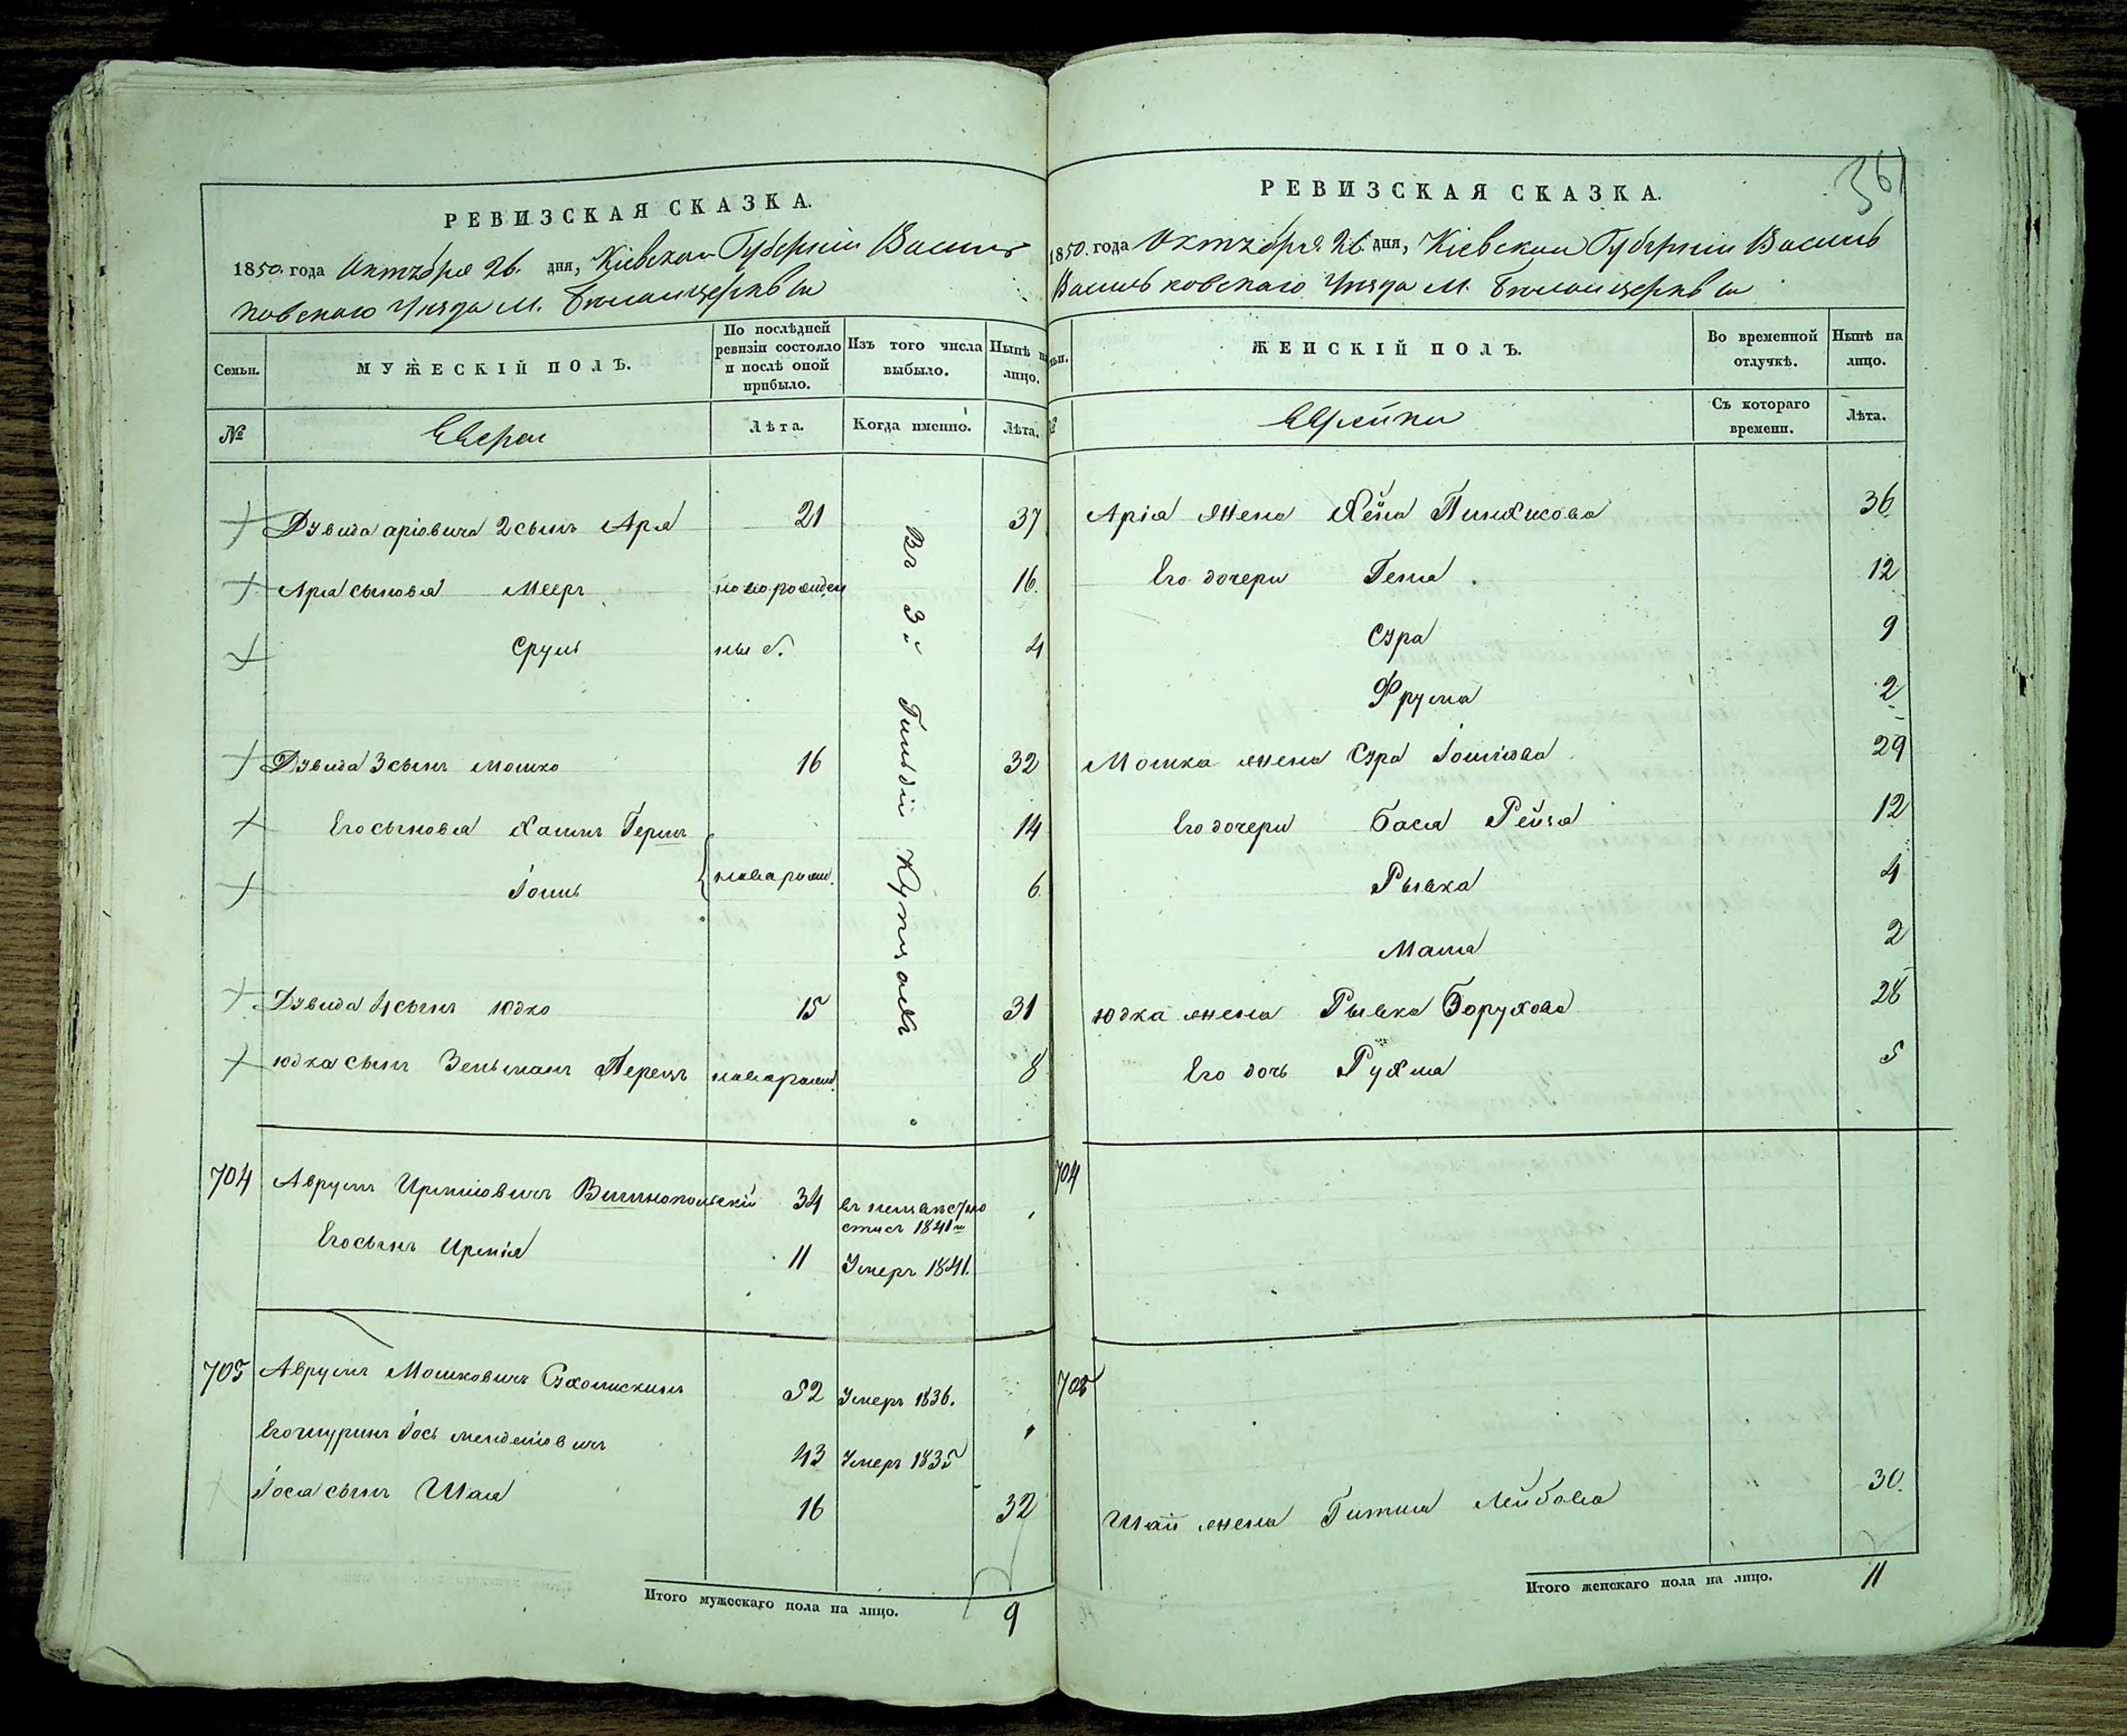 РЕВИЗСКАЯ СКАЗКА.
1850. года Октября 26. дня, Кіевской Губерніи Василь
ковскаго Уѣзда М. Бѣлойцеркви
Семьи.
МУЖЕСКІЙ ПОЛЪ.
По послѣдней ревизіи состояло и послѣ оной прибыло.
Изъ того числа выбыло.
Нынѣ на лицо.
№
Евреи
Лѣта.
Когда именно.
Лѣта.
Дувида аріовича 2 сынъ Аря 21 37
Аріа сыновья Мееръ новорожден 16.
Сруль ны е. 4
Дувида 3 сынъ Мошко 16 32
Его сыновья Хаимъ Гершъ 14
Іось новорожд. 6.
Дувида 4 сынъ Юдко 15 31
Юдка сынъ Зельманъ Перецъ новорожд. 8
Въ 3й Гильдіи Купцахъ
704 Аврумъ Ирміовичъ 34 въ неизвѣстно
стисъ 1841го
Его сынъ Ирмія 11 Умеръ 1841.
705 Аврумъ Мошковичъ 52 Умеръ 1836.
Его шуринъ Іось Менделіовичъ 43 Умеръ 1835
Іося сынъ Шая 16 32
Итого мужескаго пола на лицо. 9
361
РЕВИЗСКАЯ СКАЗКА.
1850. года Октября 26. дня, Кіевской Губерніи Василь
Васильковскаго Уѣзда М. Бѣлойцеркви
ьи.
ЖЕНСКІЙ ПОЛЪ.
Во временной отлучкѣ.
Нынѣ на лицо.
№
Еврейки
Съ котораго времени.
Лѣта.
Арія жена Хейна Пинхасова 36
Его дочери Геня 12
Сура 9
Фрума 2
Мошка жена Сура 29
Его дочери Бася Рейзя 12
Рывка 4
Маша 2
Юдка жена Рывка Борухова 28
Его дочь Рухма 5
704
705
Шаи жена Гитля Лейбова 30.
Итого женскаго пола на лицо. 11